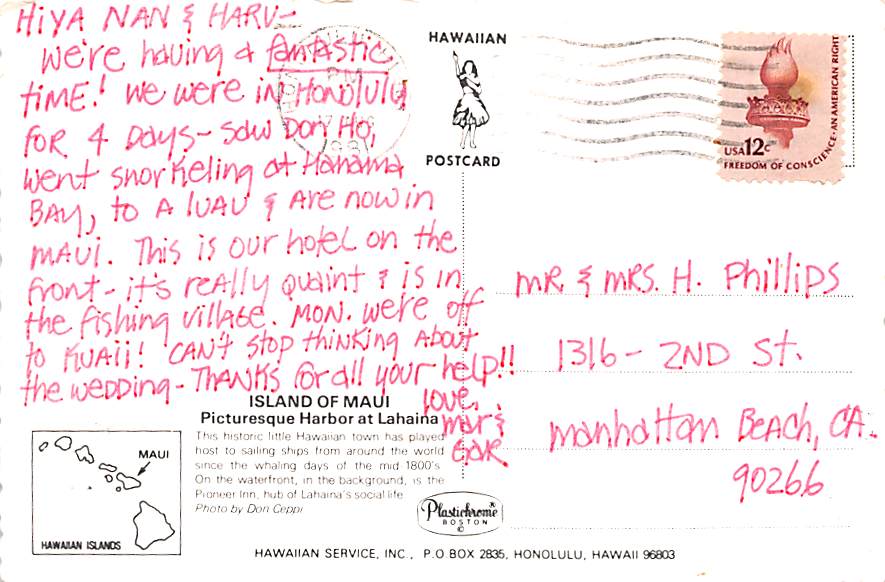 HiYA NAN & HARV-
We're having a fantastic
time! We were in Honolulu
for 4 Days- saw Don Ho,
went snorkeling at Hanama
Bay, to a luau & are now in
Maui. This is our hotel on the
front- it's really quaint & is in
the fishing village. Mon. we're off
to Kuaii! Can't stop thinking about
the wedding- Thanks for all your help!!
love,
Mar &
Gar.
HAWAIIAN
POSTCARD
USA 12c
FREEDOM OF CONSCIENCE-AN AMERICAN RIGHT
MR & MRS. H. Phillips
1316- 2ND St.
Manhattan Beach, CA.
90266
ISLAND OF MAUI
Picturesque Harbor at Lahaina
This historic little Hawaiian town has played
host to sailing ships from around the world
since the whaling days of the mid 1800's.
On the waterfront, in the background, is the
Pioneer Inn, hub of Lahaina's social life
Photo by Don Ceppi
MAUI
HAWAIIAN ISLANDS
Plastichrome®
BOSTON
©
HAWAIIAN SERVICE, INC., P.O. BOX 2835, HONOLULU, HAWAII 96803